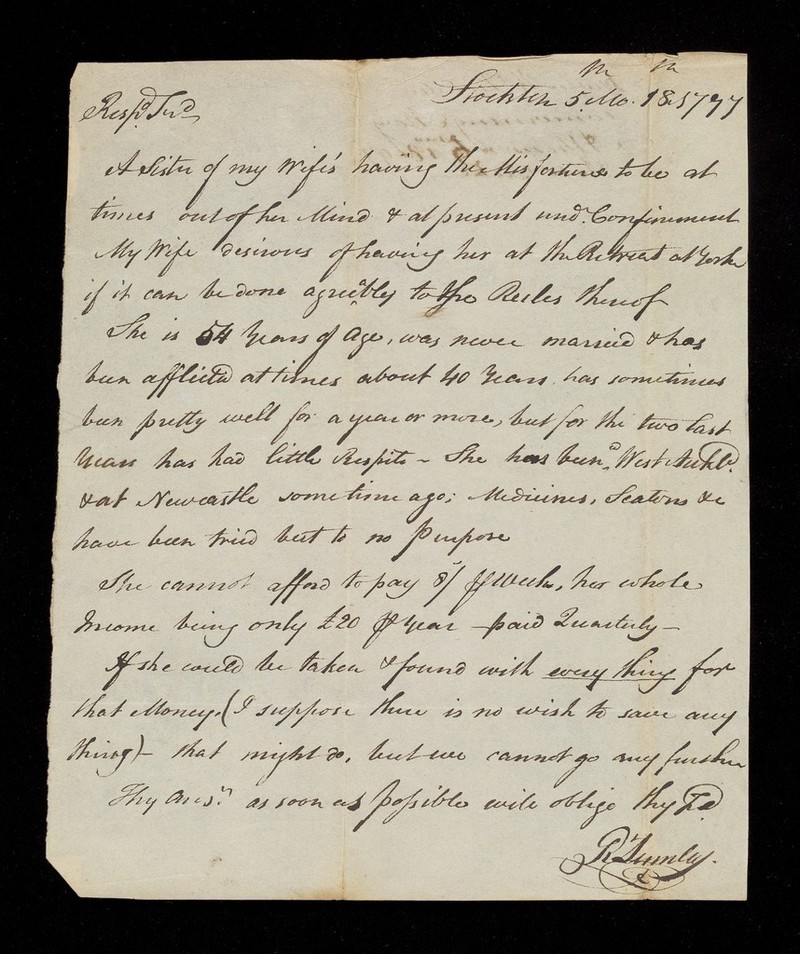 Stockton 5th Mo. 18th 1797
Respd. Frd.
A Sister of my Wife's having the Misfortune to be at
times out of her Mind & at present undr. Confinement
My Wife desirous of having her at the Retreat at York
if it can be done agreeably to the Rules thereof
She is 54 Years of Age, was never married & has
been afflicted at times about 40 Years has sometimes
been pretty well for a year or more, but for the two last
Years has had little Respite - She has been at West Auckld.
& at Newcastle some time ago; Medicines, Seatons &c
have been tried but to no Purpose
She cannot afford to pay 8/ ⅌ Week, her whole
Income being only £20 ⅌ Year - paid Quarterly -
If she could be taken & found with every thing for
that Money. (I suppose there is no wish to save any
thing) - that might do, but we cannot go any further
Thy Ansr. as soon as possible will oblige thy Fd.